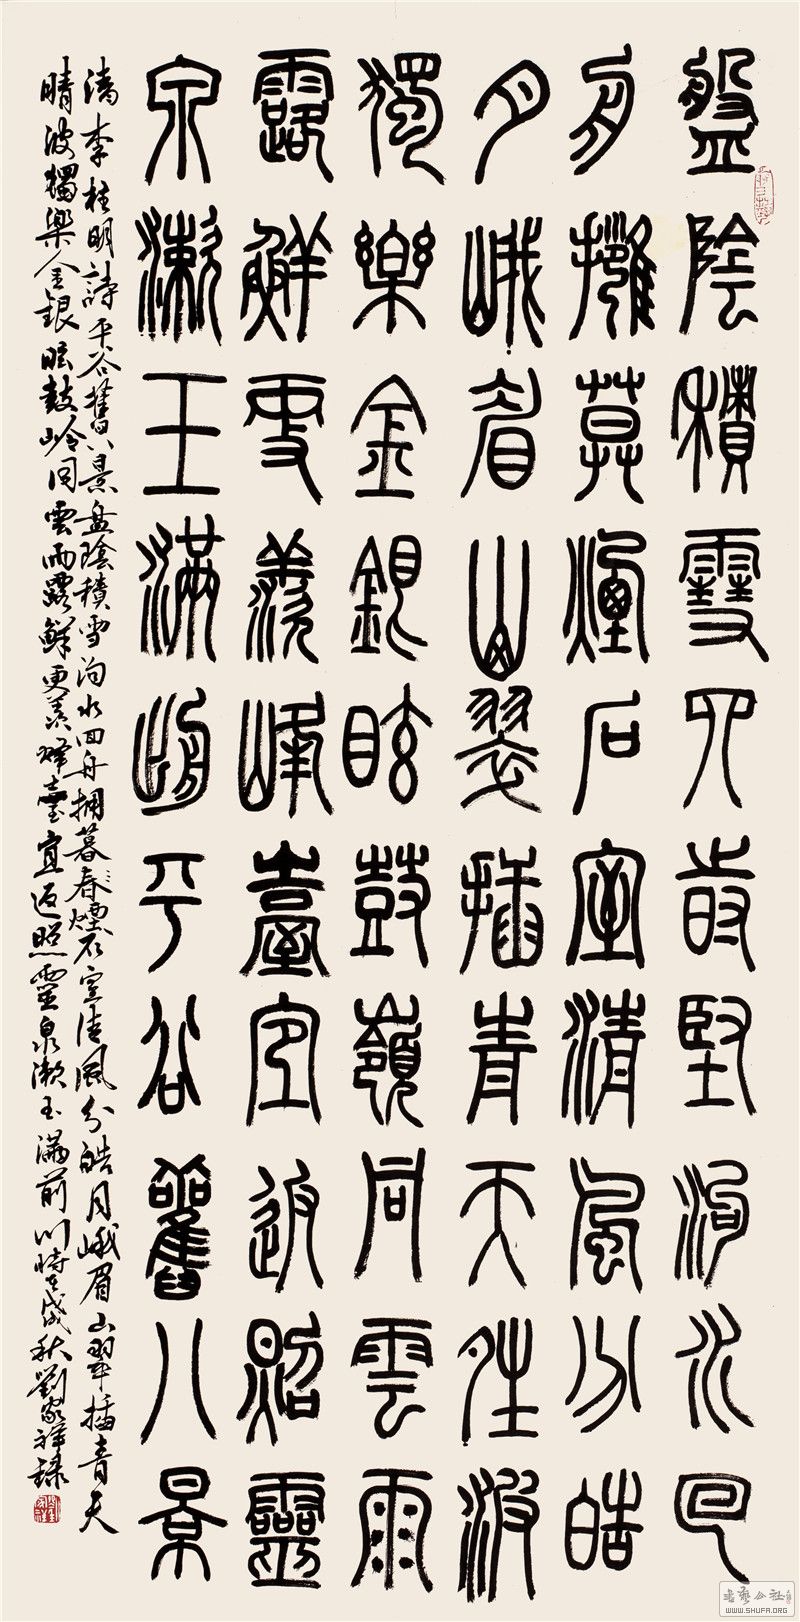 盤陰積雪四時堅泃水回
舟擁暮煙石室清風分皓
月峨眉山翠插青天晴波
獨樂金銀眩鼓嶺同雲雨
露鮮更羨峰臺宜返照靈
泉漱玉滿前平谷舊八景
清李柱明詩平谷舊八景盘陰積雪泃水回舟擁暮春煙石室清風分皓月峨眉山翠插青天
晴波獨樂金銀眩鼓岭同雲雨露鮮更羨峰臺宜返照靈泉漱玉滿前川時戊戌秋劉家祥録
WWW.SHUFA.ORG